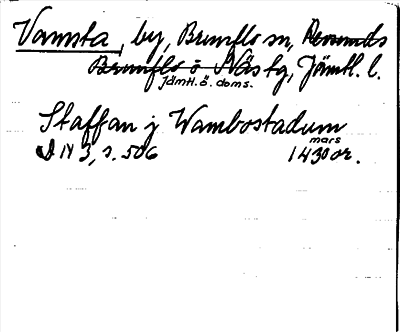 Vamsta, by, Brunflo sn, Revsunds
Brunflo o Näs tg, Jämtl. l.
Jämtl. ö. doms.
Staffan j Wambostadum
mars
DN 3, s. 506 1430 or.